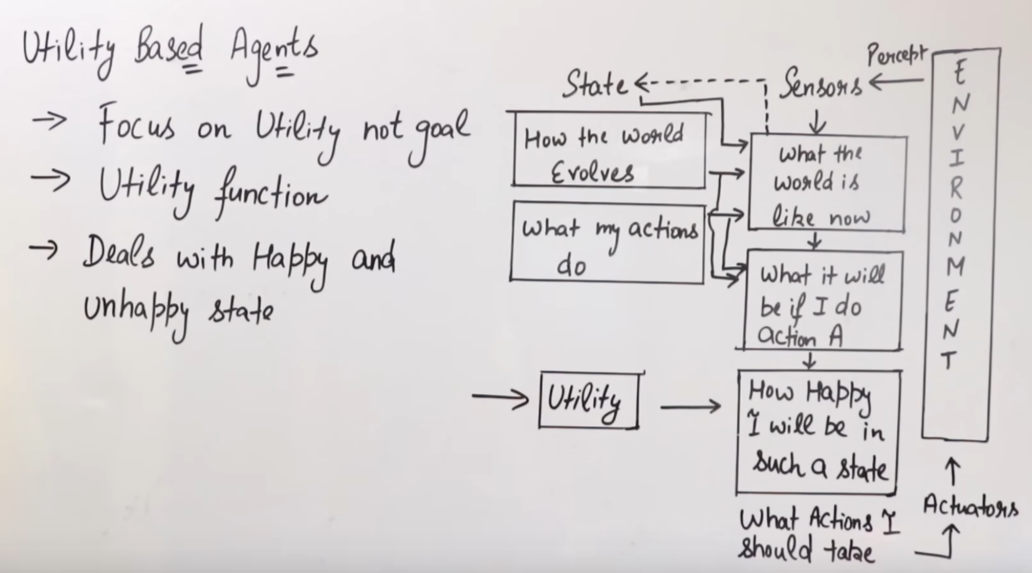 Utility Based Agents
→ Focus on Utility not goal
→ Utility function
→ Deals with Happy and
unhappy state
State
Sensors
Percept
ENVIRONMENT
How the world
Evolves
What my actions
do
What the
world is
like now
What it will
be if I do
action A
Utility
How Happy
I will be in
such a state
What Actions I
should take
Actuators